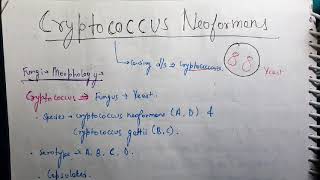 Cryptococcus Neoformans
causing d/s → Cryptococcosis
Yeast
Fungi - Morphology →
Cryptococcus ⇒ Fungus + Yeast.
• Species → cryptococcus neoformans (A, D) &
Cryptococcus gattii (B, C).
• Serotype → A, B, C, D.
• Capsulated.